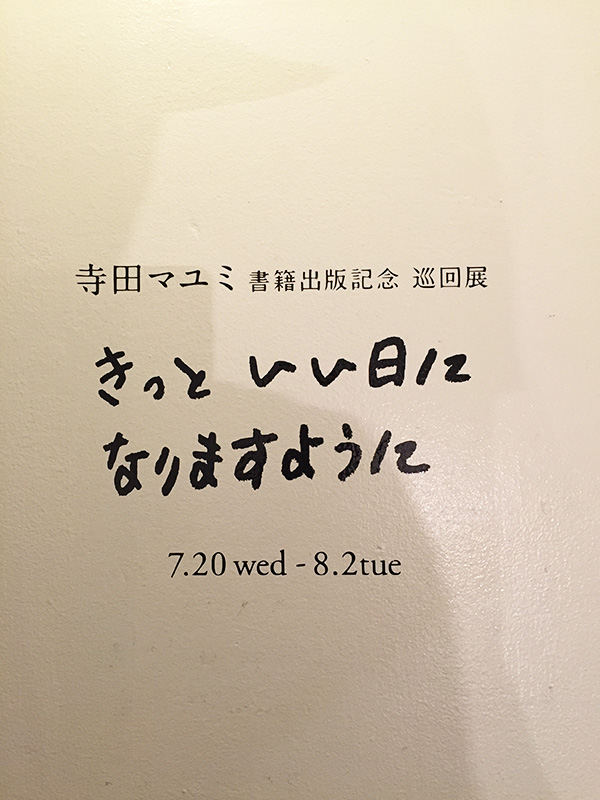 寺田マユミ 書籍出版記念 巡回展
きっと いい日に
なりますように
7.20 wed - 8.2tue